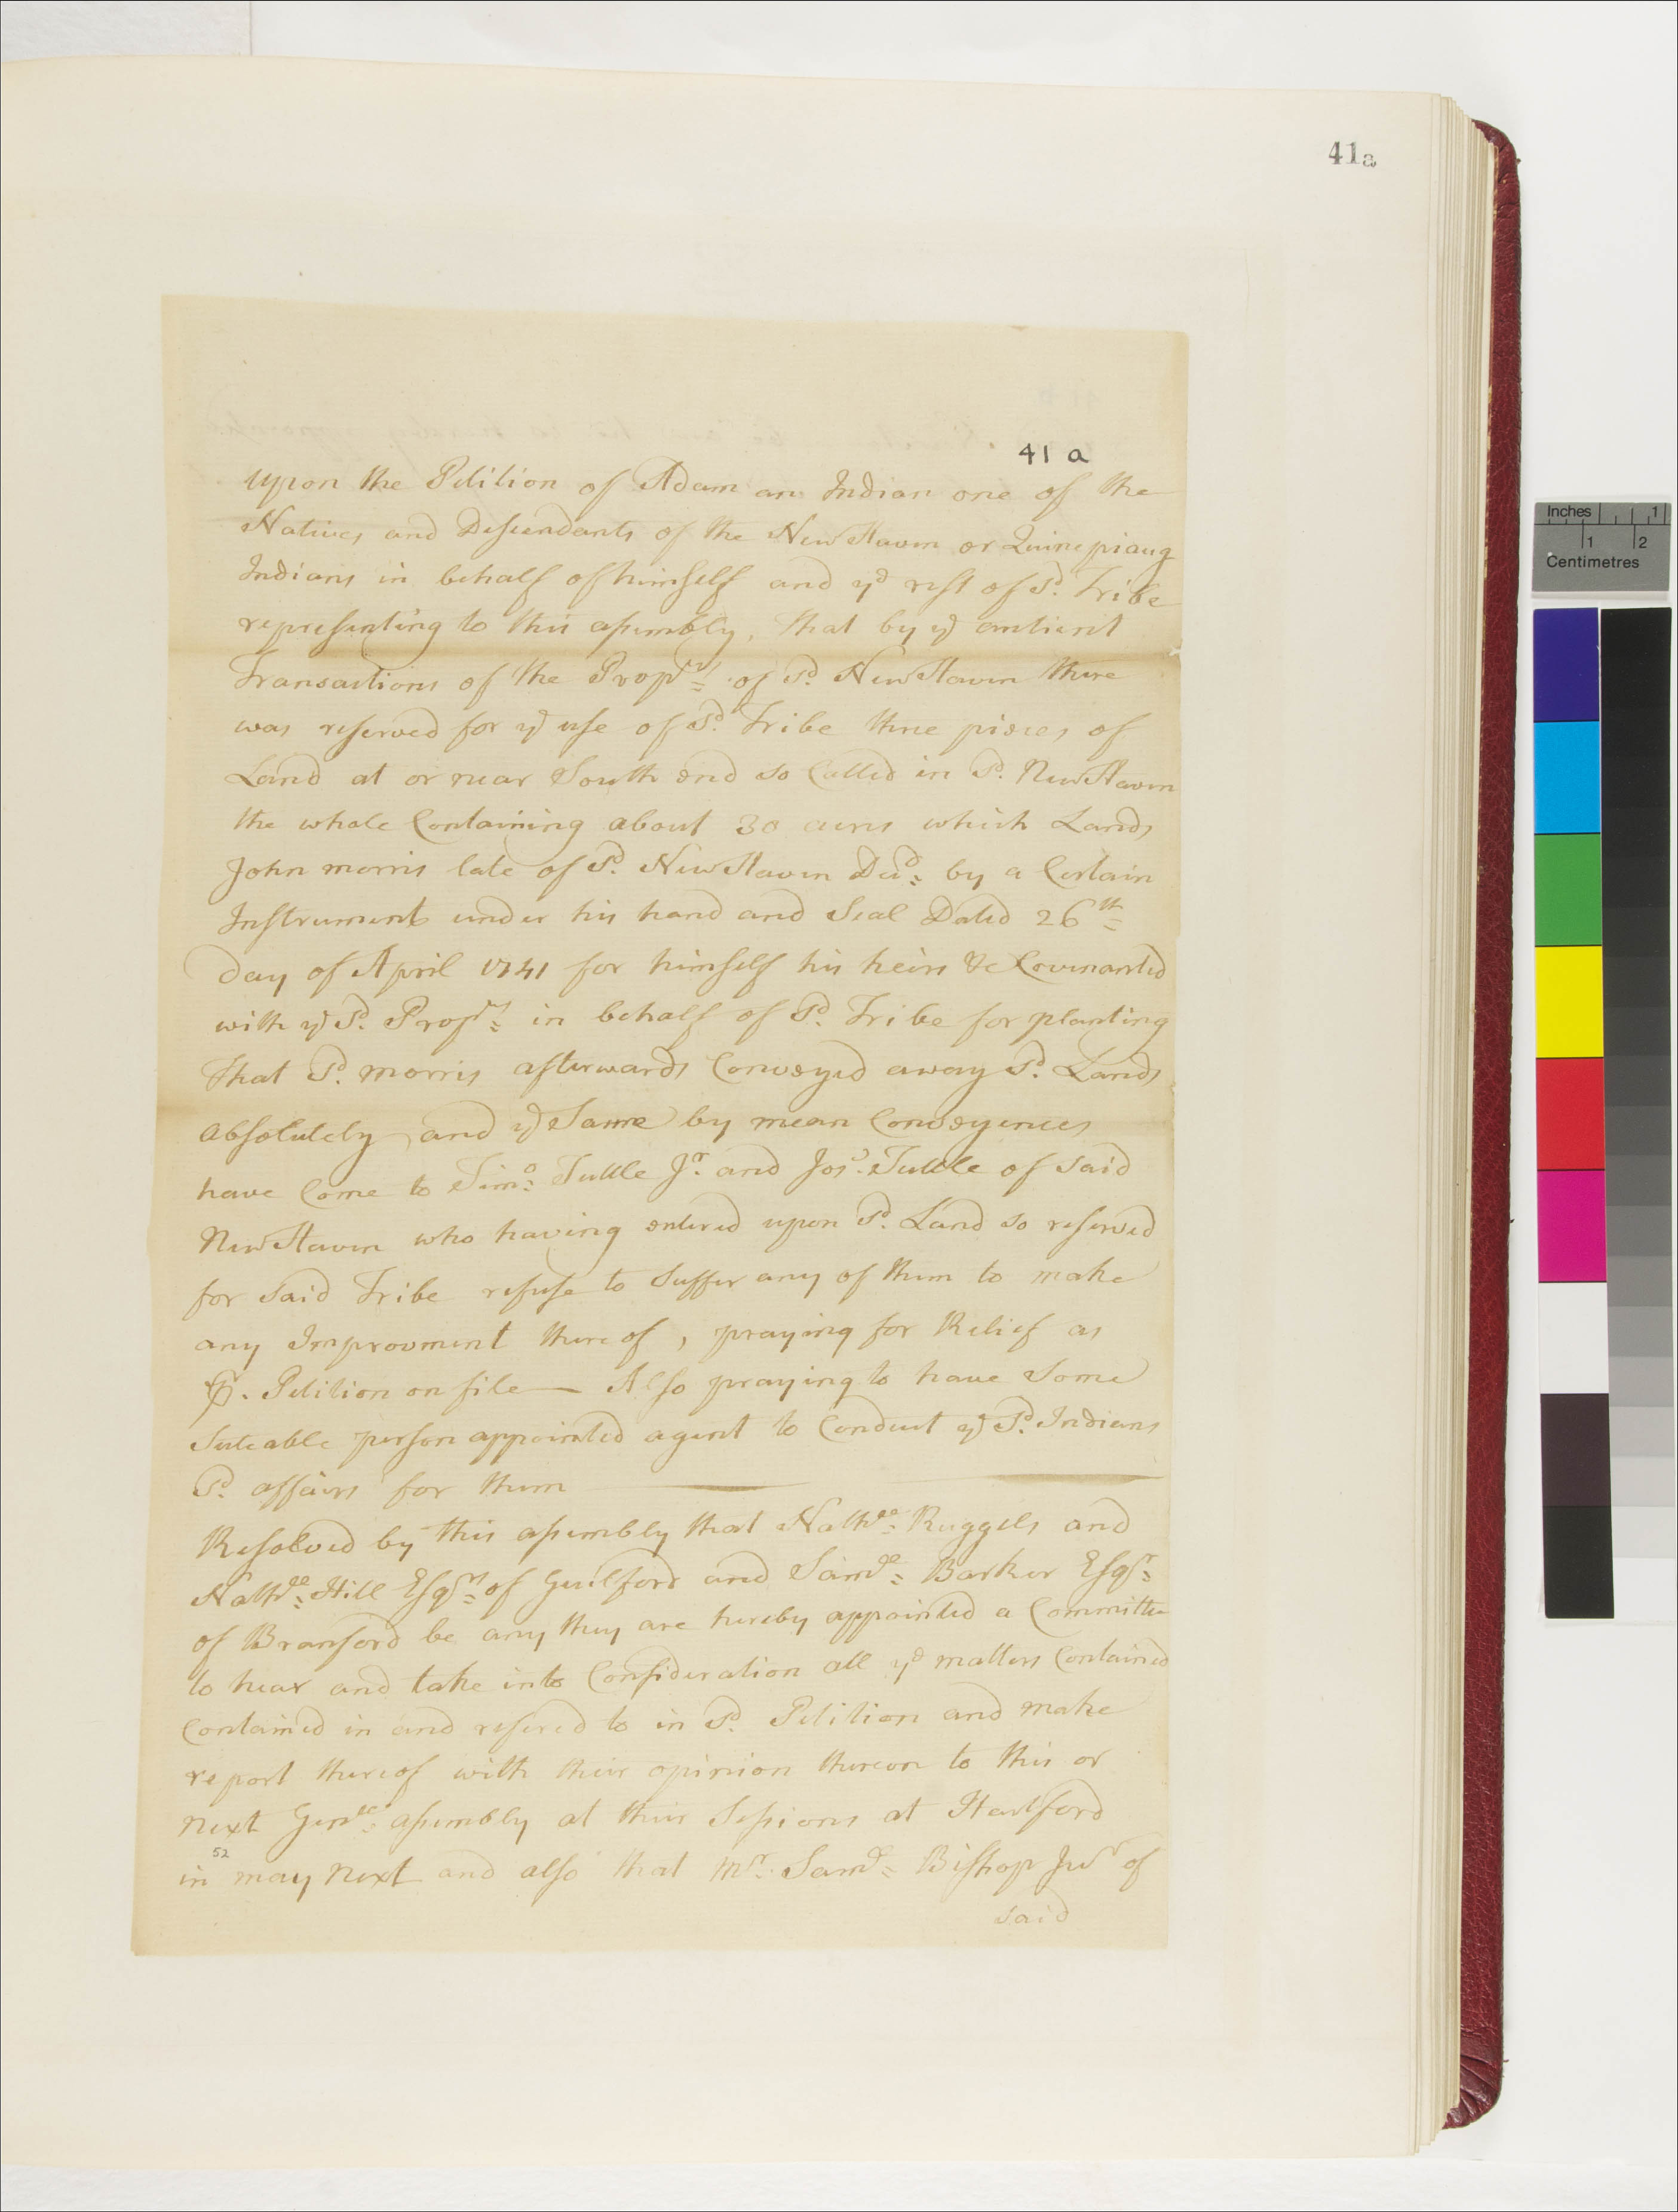 41a
41 a
upon the Petition of Adam an Indian one of the
Natives and Descendants of the New Haven or Quinepiaug
Indians in behalf of himself and yᵉ rest of sᵈ. Tribe
representing to this assembly, that by yᵉ antient
Transactions of the Propʳˢ of sᵈ. New Haven there
was reserved for yᵉ use of sᵈ. Tribe three pieces of
Land at or near South end so Called in sᵈ. New Haven
the whole Containing about 30 acres which Lands
John morris late of sᵈ. New Haven Decᵈ. by a Certain
Instrument under his hand and Seal Dated 26ᵗʰ
Day of April 1741 for himself his heirs &c Covenanted
with yᵉ sᵈ. Propʳˢ in behalf of sᵈ. Tribe for planting
that sᵈ. morris afterwards Conveyed away sᵈ. Lands
absolutely and yᵉ Same by mean Conveyences
have Come to Timᵒ: Tuttle Jʳ. and Josᵖ. Tuttle of said
New Haven who having entered upon sᵈ. Land so reserved
for said Tribe refuse to Suffer any of them to make
any Improvment there of, praying for Relief as
⅌. Petition on file — Also praying to have Some
Suteable person appointed agent to Conduct yᵉ sᵈ. Indians
sᵈ. affairs for them
Resolved by this assembly that Nathˡˡ: Ruggels and
Nathˡˡ: Hill Esqʳˢ of Guilford and Samˡˡ: Barker Esqʳ:
of Branford be any they are hereby appointed a Committee
to hear and take into Consideration all yᵉ matters Contained
Contained in and refered to in sᵈ. Petition and make
report thereof with their opinion thereon to this or
next Genˡˡ: assembly at their Sessions at Hartford
52
in may next and also that Mʳ. Samˡˡ: Bishop Junʳ of
said
Inches 1
1 2
Centimetres